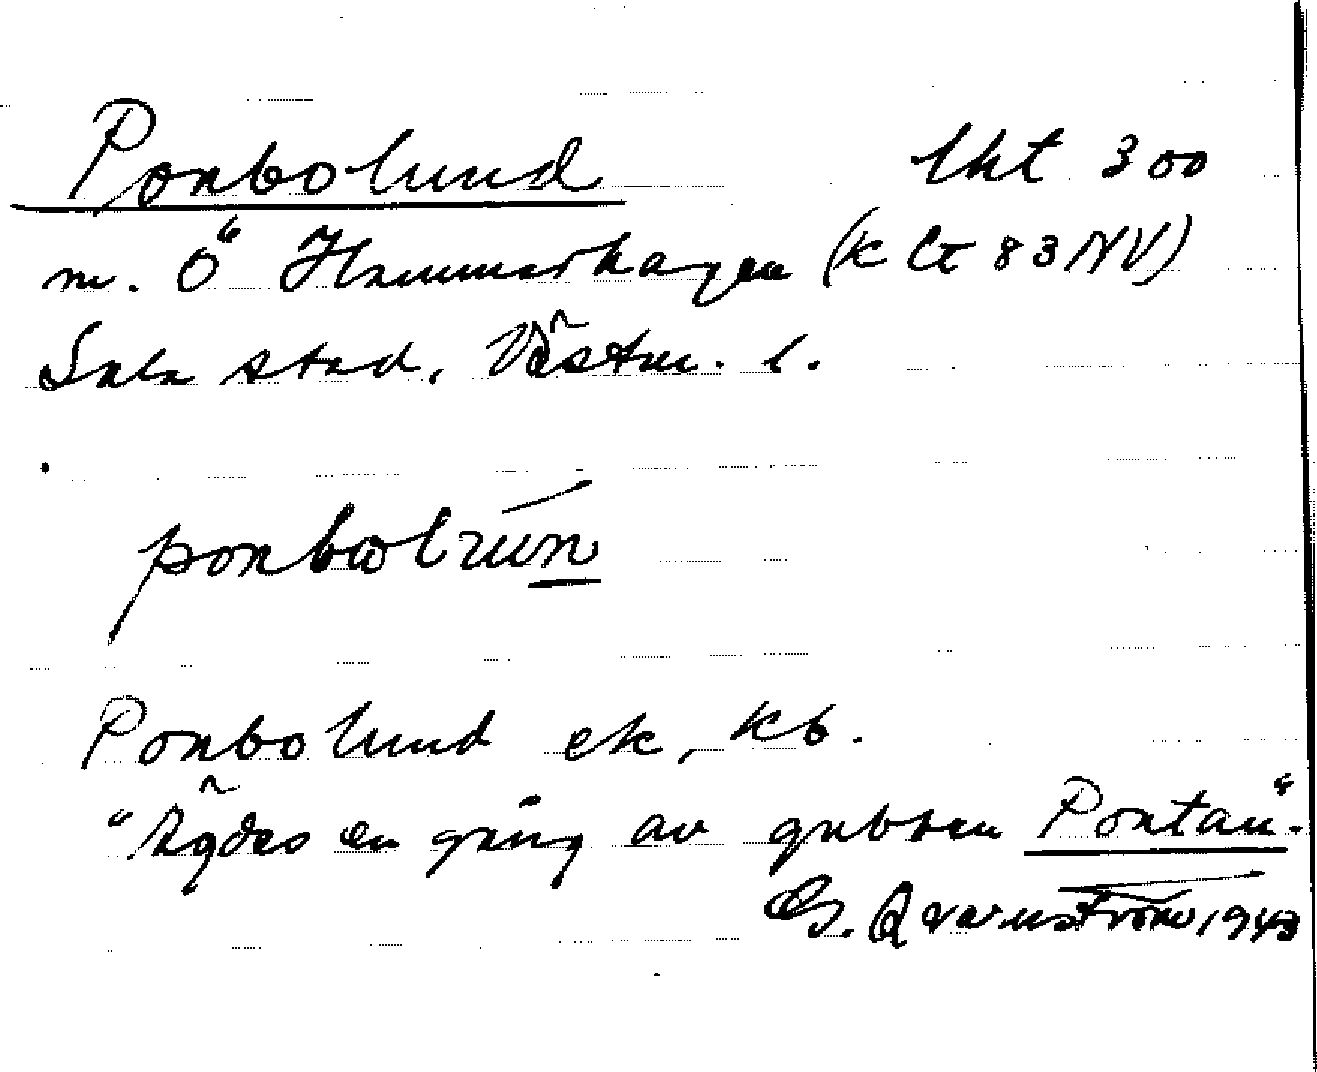 Ponbolund lht 300
m. Ö Hammarhagen (K lt 83 NV)
Sala stad. Västm. l.
ponbωlun
Ponbolund ek, kb.
"Ägdes en gång av gubben Pontan".
G. Qvarnström 1943